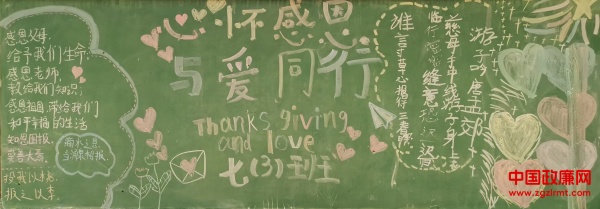 感恩父母,
给予我们生命;
感恩老师,
教给我们知识;
感恩祖国,带给我们
和平幸福的生活
知恩图报,
莫善大焉.
投我以木桃,
报之以李.
滴水之恩
涌泉相报
心怀感恩
与爱同行
Thanks giving
and love
七(3)班
游子吟 唐 孟郊
慈母手中线,游子身上
临行密密缝,意恐迟迟
谁言寸草心,报得三春晖
中国政廉网
www.zgzlrmt.com